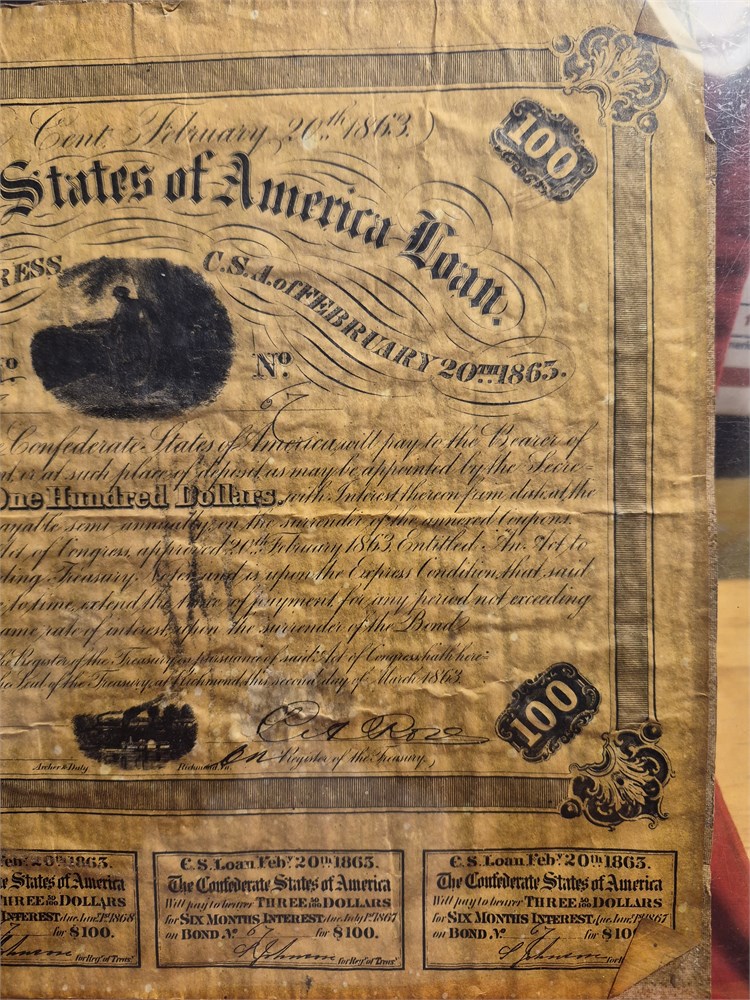 Cent, February 20th 1863.)
100
States of America Loan.
RESS
C.S.A. of FEBRUARY 20TH 1863.
No
No.
67
Confederate States of America, will pay to the Bearer of
or at such place of deposit as may be appointed by the Secre=
One Hundred Dollars. with Interest thereon from date, at the
payable semi-annually, on the surrender of the annexed Coupons.
Act of Congress, approved 20th February 1863, Entitled "An Act to
ding Treasury Notes, and is upon the Express Condition, that said
to time, extend the time of payment, for any period not exceeding
same rate of interest, upon the surrender of the Bond.
the Register of the Treasury, in pursuance of said Act of Congress, hath here=
the Seal of the Treasury, at Richmond, this second day of March 1863
100
Register of the Treasury.
Archer & Daly
Richmond, Va.
Feby 20th 1863.
States of America
THREE 50/100 DOLLARS
INTEREST due Jany 1st 1868
7 for $100.
for Reg'r of Treas'y
C.S. Loan Feby 20th 1863.
The Confederate States of America
Will pay to bearer THREE 50/100 DOLLARS
for SIX MONTHS INTEREST due July 1st 1867
on BOND No. 67 for $100.
for Reg'r of Treas'y
C.S. Loan Feby 20th 1863.
The Confederate States of America
Will pay to bearer THREE 50/100 DOLLARS
for SIX MONTHS INTEREST due Jany 1st 1867
on BOND No. 67 for $10
for